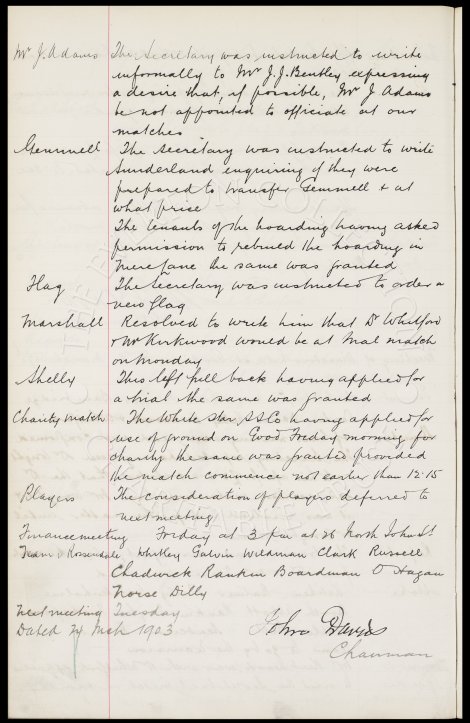 Mr J. Adams The Secretary was instructed to write
informally to Mr J. J. Bentley expressing
a desire that, if possible, Mr J Adams
be not appointed to officiate at our
matches
Gemmell The Secretary was instructed to write
Sunderland enquiring if they were
prepared to transfer Gemmell & at
what price
The tenants of the hoarding having asked
permission to rebuild the hoarding in
Mere Lane the same was granted
Flag The Secretary was instructed to order a
new flag
Marshall Resolved to write him that Dr Whitford
& Mr Kirkwood would be at trial match
on Monday
Shelly This left full back having applied for
a trial the same was granted
Charity match The White Star SS Co having applied for
use of ground on Good Friday morning for
charity the same was granted provided
the match commence not earlier than 12.15
Players The consideration of players deferred to
next meeting
Finance meeting Friday at 3 pm at 26 North John St
Team v Rossendale Whitley Balmer Wildman Clark Russell
Chadwick Rankin Boardman O'Hagan
Morse Dilly
Next meeting Tuesday
Dated 24 Mch 1903 John Davies
Chairman